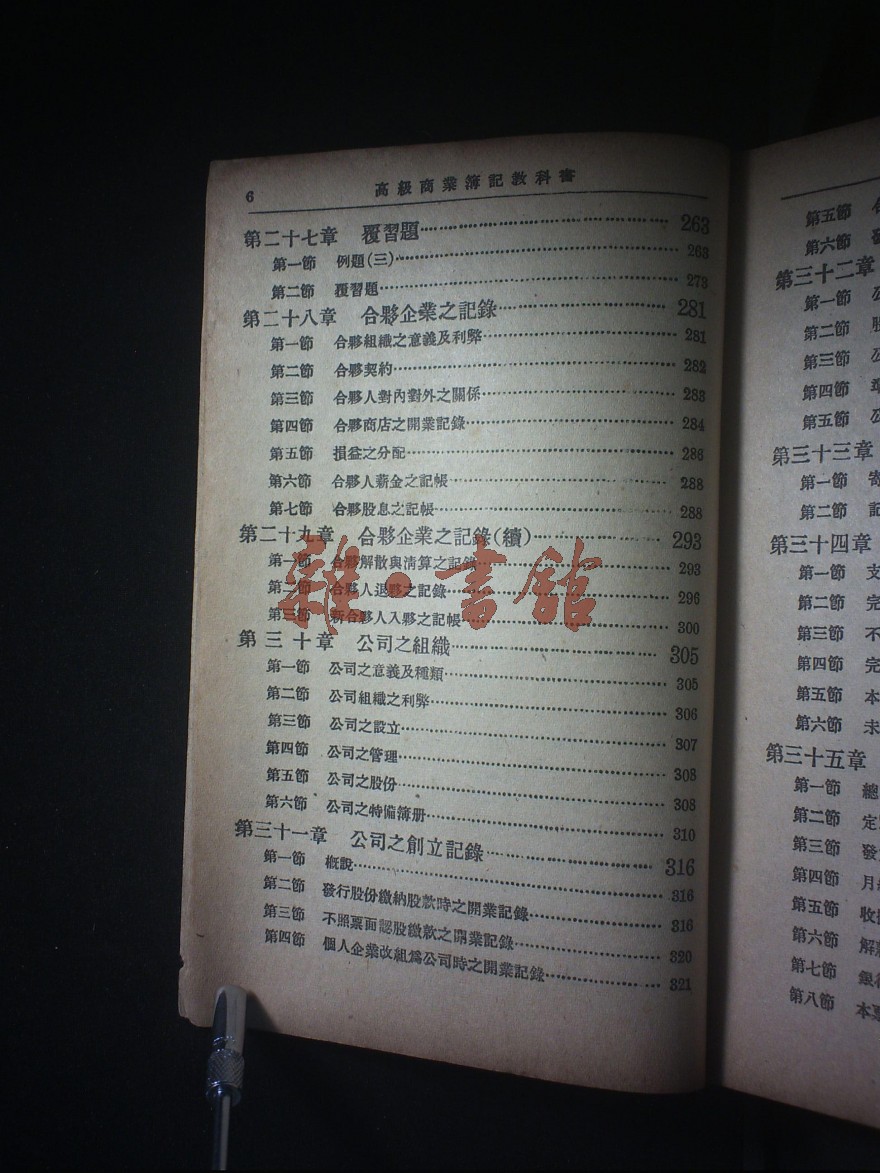 6 高級商業簿記教科書
第二十七章 覆習題 263
第一節 例題(三) 263
第二節 覆習題 273
第二十八章 合夥企業之記錄 281
第一節 合夥組織之意義及利弊 281
第二節 合夥契約 282
第三節 合夥人對內對外之關係 283
第四節 合夥商店之開業記錄 284
第五節 損益之分配 286
第六節 合夥人薪金之記帳 288
第七節 合夥股息之記帳 288
第二十九章 合夥企業之記錄(續) 293
第一節 合夥解散與清算之記錄 293
第二節 合夥人退夥之記錄 296
第三節 新合夥人入夥之記帳 300
雜·書館
第三十章 公司之組織 305
第一節 公司之意義及種類 305
第二節 公司組織之利弊 306
第三節 公司之設立 307
第四節 公司之管理 308
第五節 公司之股份 308
第六節 公司之特備簿册 310
第三十一章 公司之創立記錄 316
第一節 概說 316
第二節 發行股份繳納股款時之開業記錄 316
第三節 不照票面認股繳款之開業記錄 320
第四節 個人企業改組爲公司時之開業記錄 321
第五節
第六節
第三十二章
第一節 公
第二節 股
第三節 公
第四節
第五節 公
第三十三章
第一節 寄
第二節 記
第三十四章
第一節 支
第二節 完
第三節 不
第四節 完
第五節 本
第六節 未
第三十五章
第一節 總
第二節 定
第三節 發
第四節 月
第五節 收
第六節 解
第七節 銀
第八節 本票